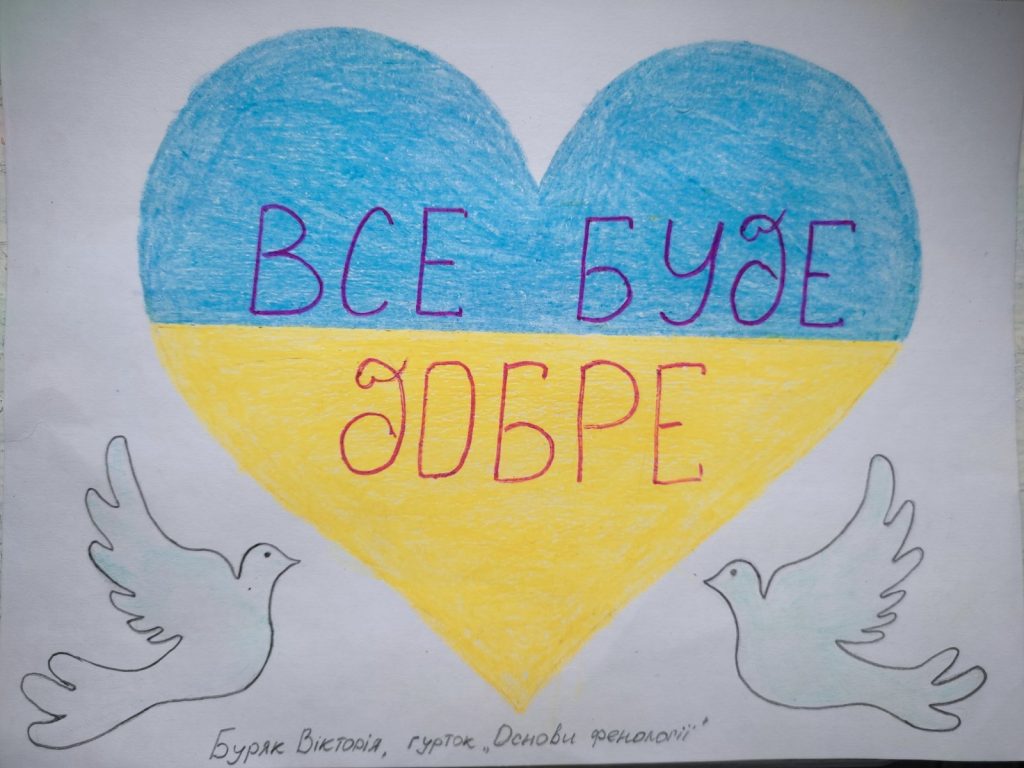 ВСЕ БУДЕ
ДОБРЕ
Буряк Вікторія, гурток „Основи фенології"